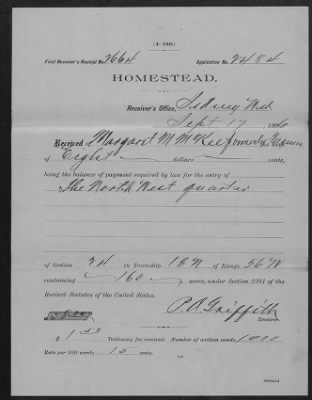 (4—140.)
Final Receiver's Receipt No. 2664 Application No. 2484
HOMESTEAD.
Receiver's Office, Sidney Neb
Sept 17, 18
Received of Margaret M McKee formerly
of Eight dollars cents,
being the balance of payment required by law for the entry of
The North West quarter
of Section 24 in Township 18 N of Range 56 W
containing 160 acres, under Section 2291 of the
Revised Statutes of the United States.
P. A. Griffith
Receiver.
$ 1 Testimony fee received. Number of written words, 1011
Rate per 100 words 15 cents.